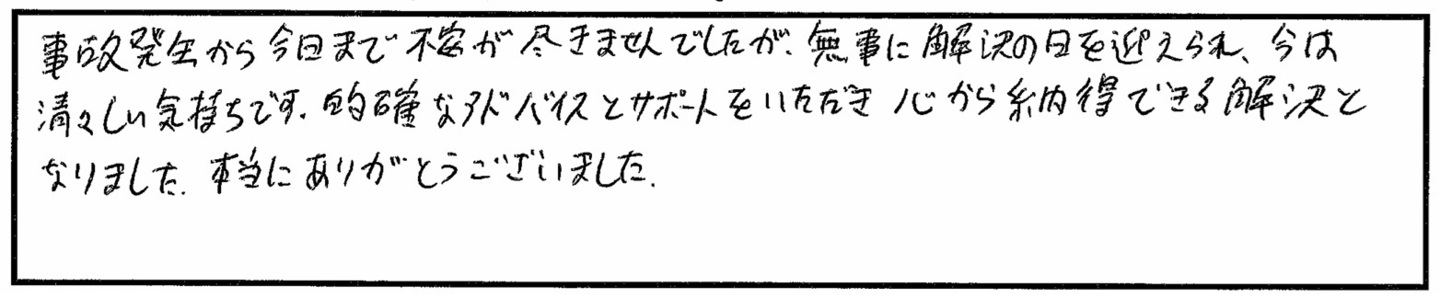 事故発生から今日まで不安が尽きませんでしたが、無事に解決の日を迎えられ、今は
清々しい気持ちです。的確なアドバイスとサポートをいただき心から納得できる解決と
なりました。本当にありがとうございました。